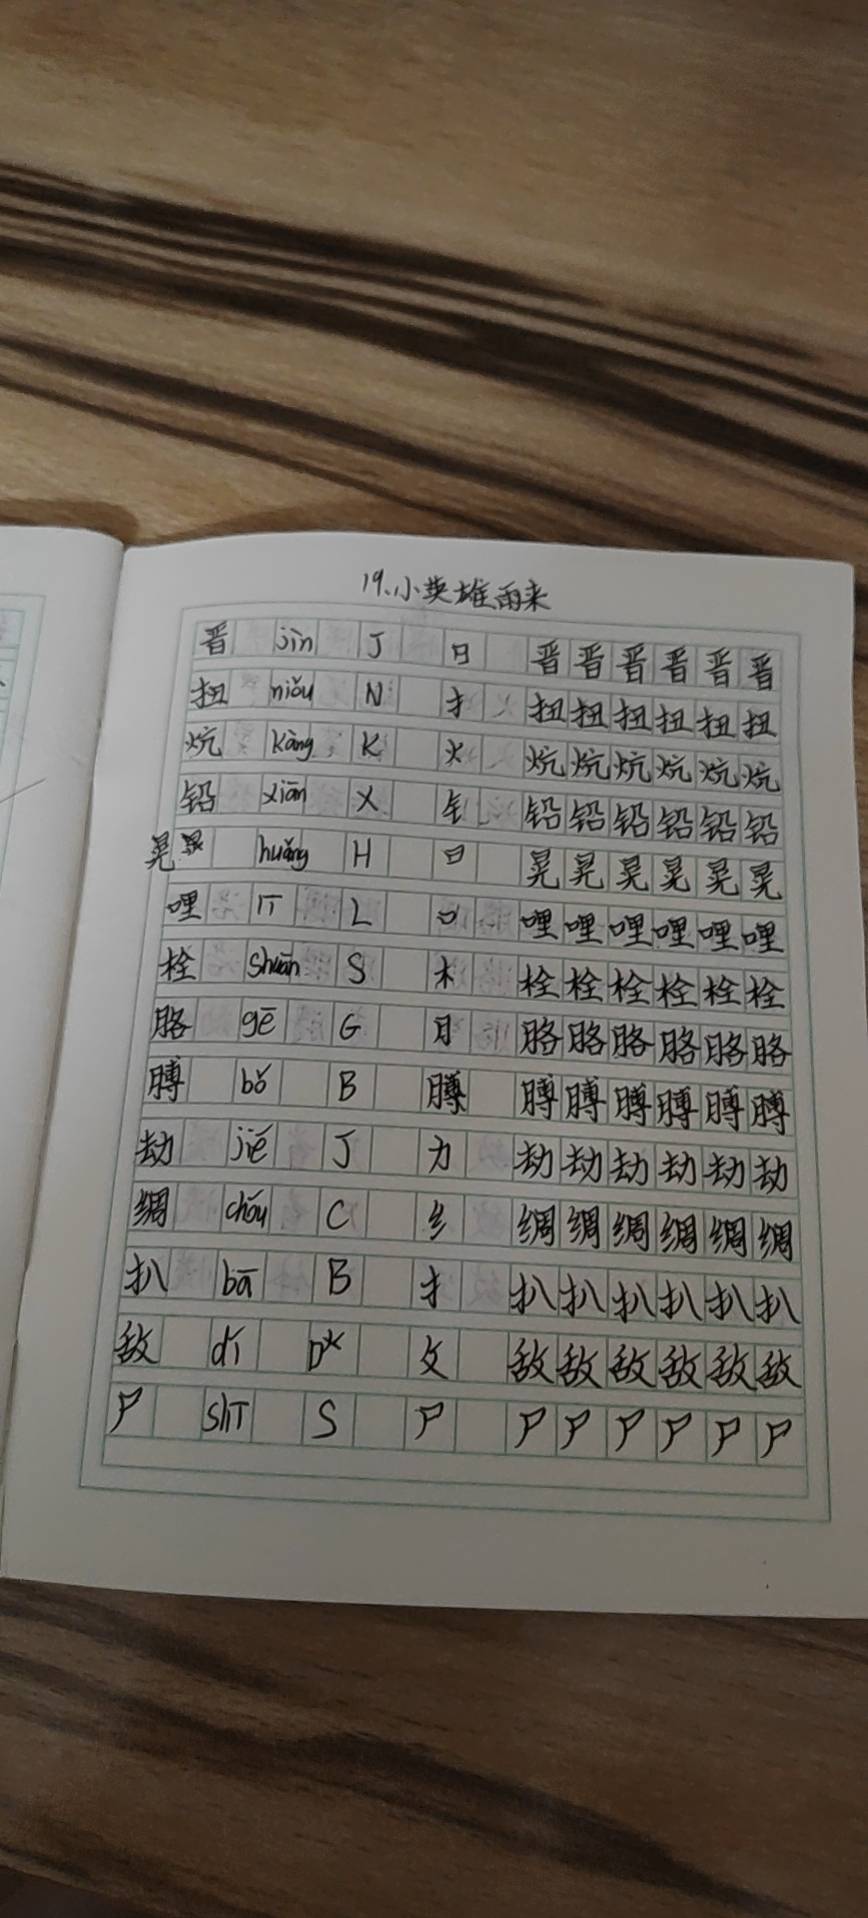 19.小英雄雨来
晋 jìn J 日 晋晋晋晋晋晋
扭 niǔu N 扌 扭扭扭扭扭扭
炕 kàng K 火 炕炕炕炕炕炕
铅 xiān X 钅 铅铅铅铅铅铅
晃 huǎng H 日 晃晃晃晃晃晃
哩 lī L 口 哩哩哩哩哩哩
栓 shuān S 木 栓栓栓栓栓栓
胳 gē G 月 胳胳胳胳胳胳
膊 bǒ B 膊 膊膊膊膊膊膊
劫 jié J 力 劫劫劫劫劫劫
绸 chóu C 纟 绸绸绸绸绸绸
扒 bā B 扌 扒扒扒扒扒扒
敌 dí D 攵 敌敌敌敌敌敌
尸 shī S 尸 尸尸尸尸尸尸